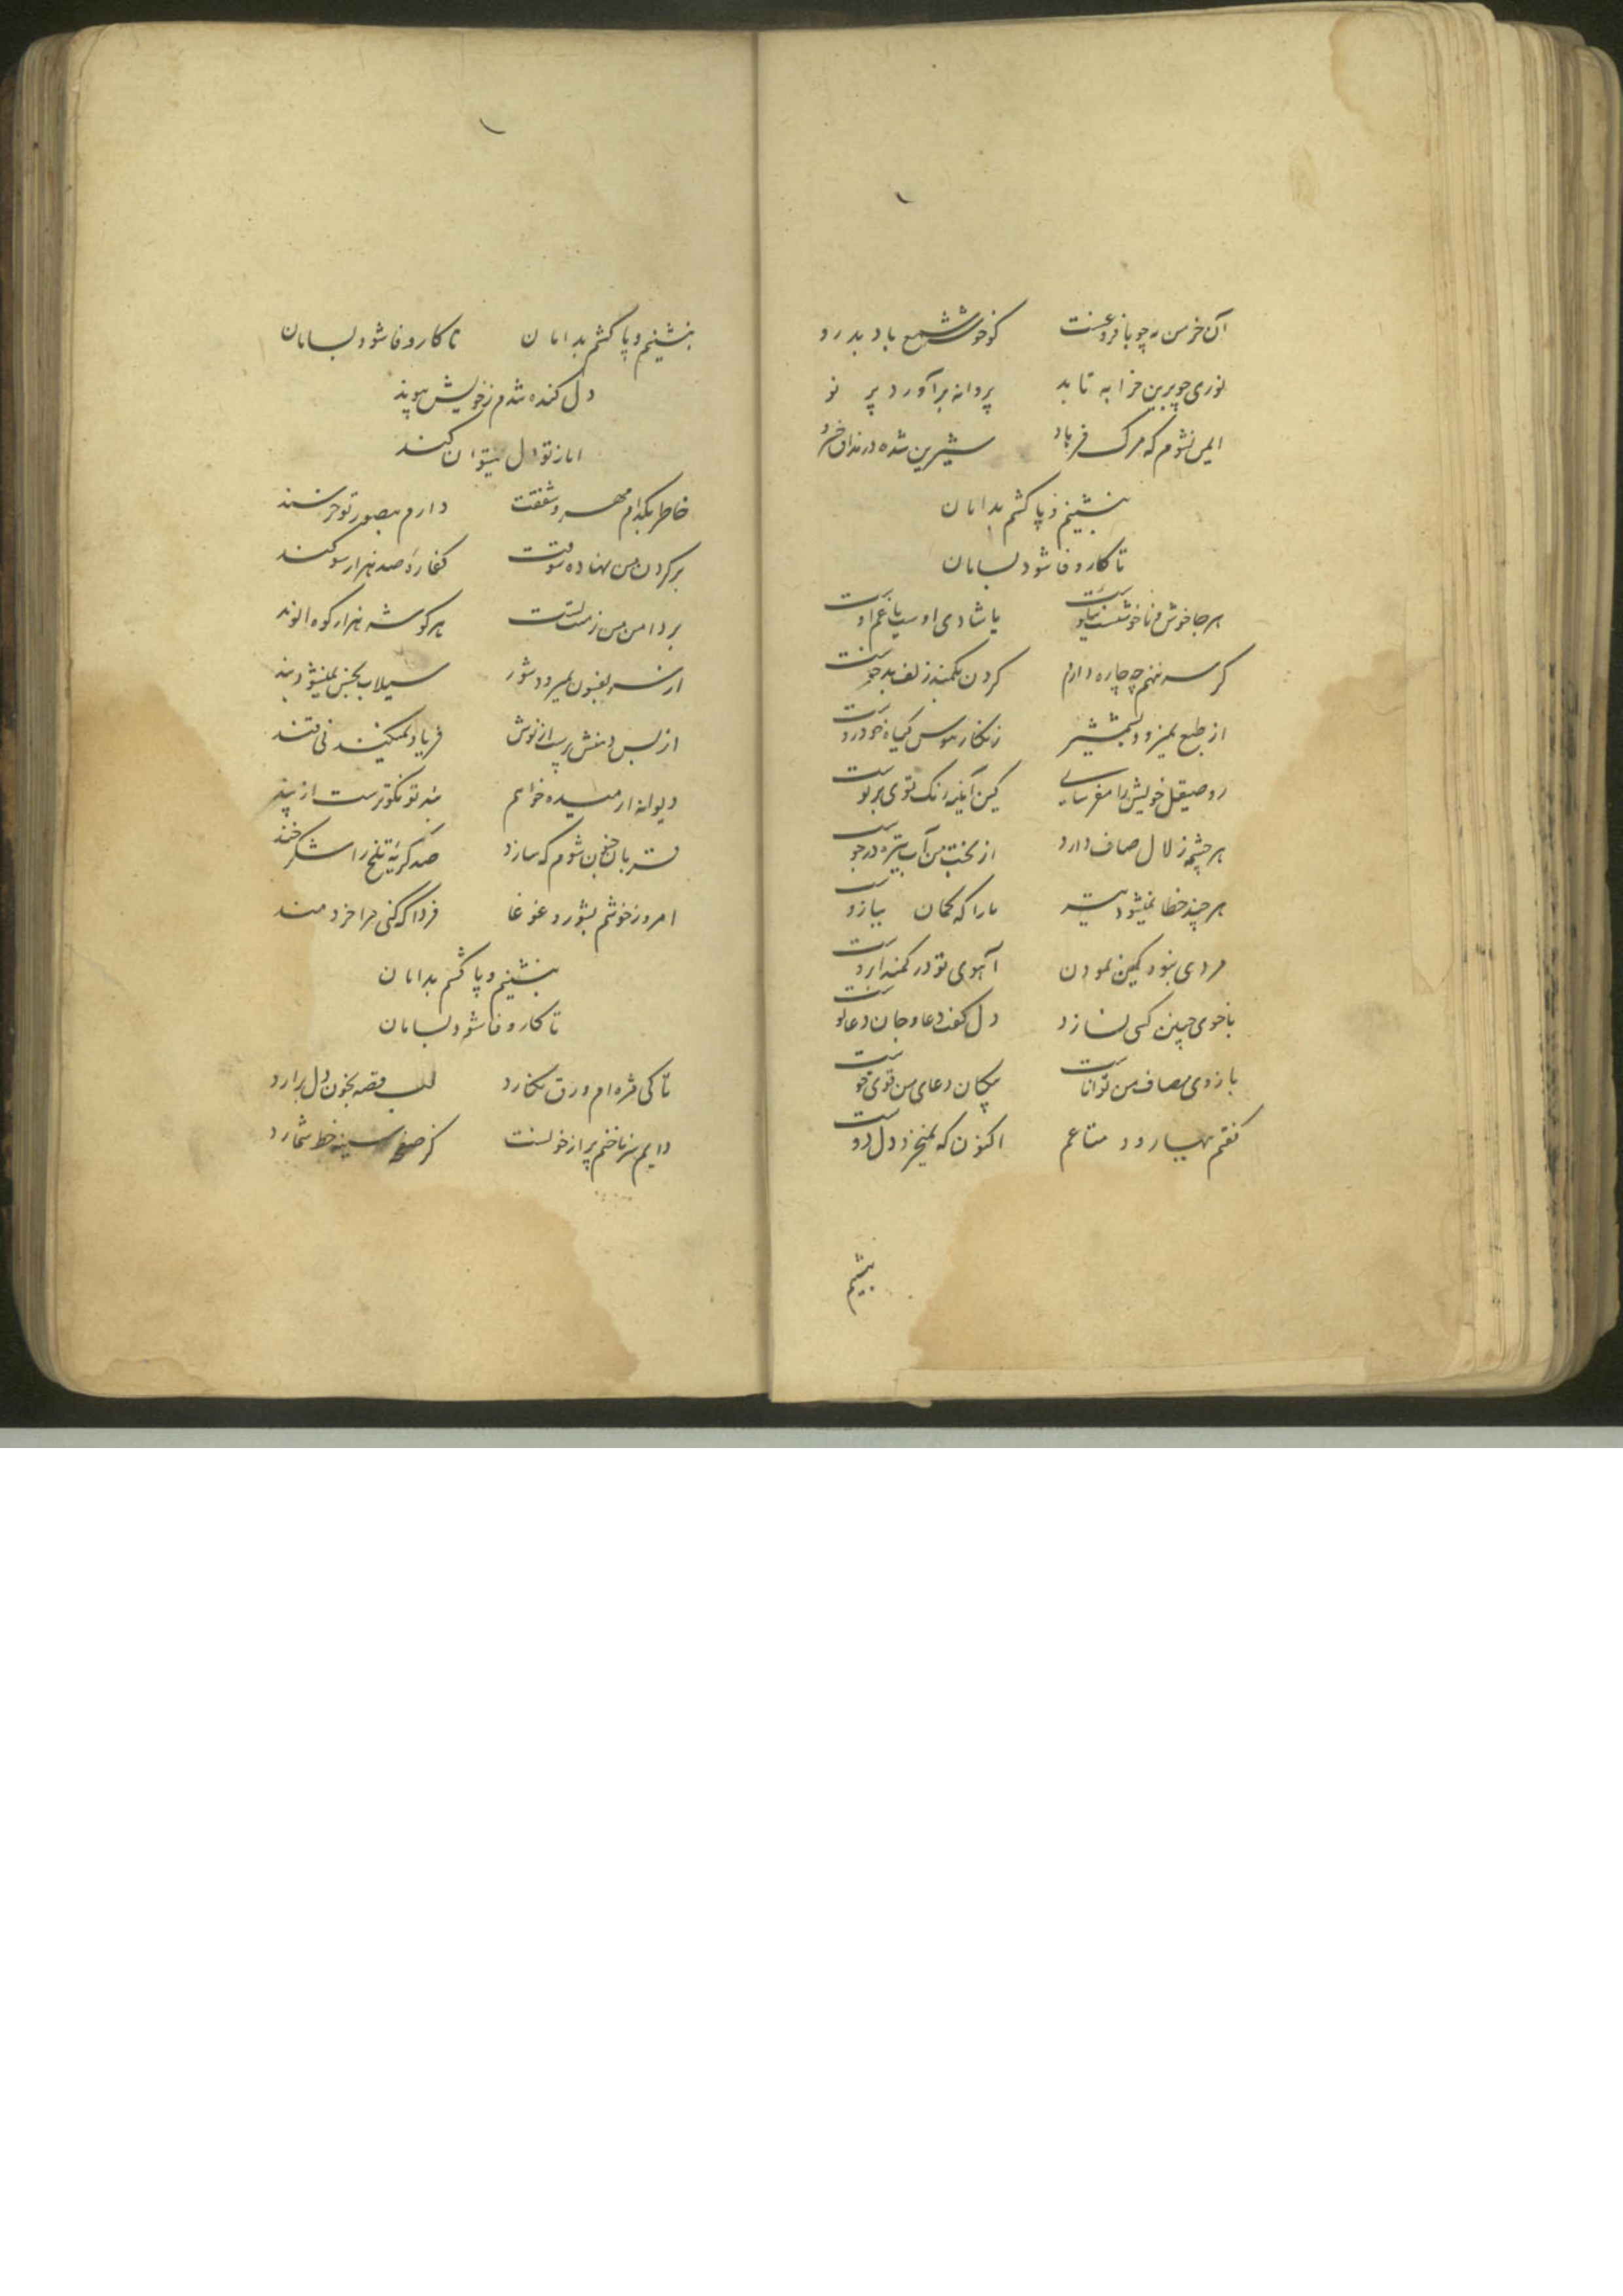 آن خرمن مه چو با فروغست کو خوشه شمع باد بدرو
نوری چو برین خرابه تابد پروانه برآورد پر نو
ایمن نشوم که مرک فرهاد شیرین شده در مذاق خسرو
بنشینم و پا کشم بدامان
تا کار وفا شود بسامان
هر جا خوش و ناخوشست با شادی اوست یا غم اوست
کر سر ننهم چه چاره دارم کردن بکمند زلف بدخوست
از طبع نمیرود بشمشیر زنکار هوس کیاه خودروست
رو صیقل خویش را مفرسای کین آینه زنک توی بر توست
هر چشمه زلال صاف دارد از بخت من آب تیره در جوست
هر چند خطا نمیشود تیر ما را که کمان ببازوست
مردی نبود کمین نمودن آهوی تو در کمند ابروست
با خوی چنین کسی نسازد دل کفت دعا و جان دعا کوست
بازوی مصاف من تواناست پیکان دعای من قوی
کفتم بهبارود متاعم اکنون که نمیخرند دل دوست
بنشینم
بنشینم و پا کشم بدامان تا کار وفا شود بسامان
دل کنده شدم ز خویش و پیوند
اما ز تو دل نمیتوان کند
خاطر بکدام مهر و شفقت دارم بصبور تو خرسند
بر کردن من نهاده شوقت کفاره صد هزار سوکند
بر دامن من ز تست هر کوشه هزار کوه الوند
از سر بفسون نمیرود شور سیلاب بخس نمیشود بند
از بس دهنش پرست از نوش فریاد نمیکند نی قند
دیوانه ارمیده خواهم بند تو نکوترست از پند
قربان جنون شوم که سازد صد کریه تلخ را شکر خند
امروز خوشم بشور و غوغا فردا که کنی مرا خردمند
بنشینم و پا کشم بدامان
تا کار وفا شود بسامان
تا کی مژه ام ورق نکارد لب قصه بخون دل برارد
دایم سر ناخنم پر از خونست کز صفحه سینه خط شمارد